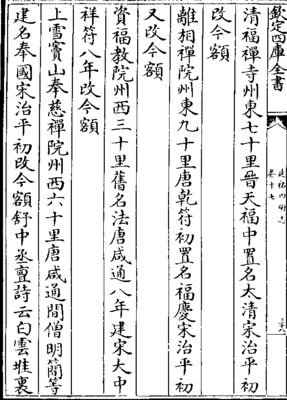 欽定四庫全書
卷十七
清福禪寺州東七十里晉天福中置名太清宋治平初
改今額
離相禪院州東九十里唐乾符初置名福慶宋治平初
又改今額
資福教院州西三十里舊名法唐咸通八年建宋大中
祥符八年改今額
上雪竇山奉慈禪院州西六十里唐咸通間僧明簡等
建名奉國宋治平初改今額舒中丞亶詩云白雲堆裏